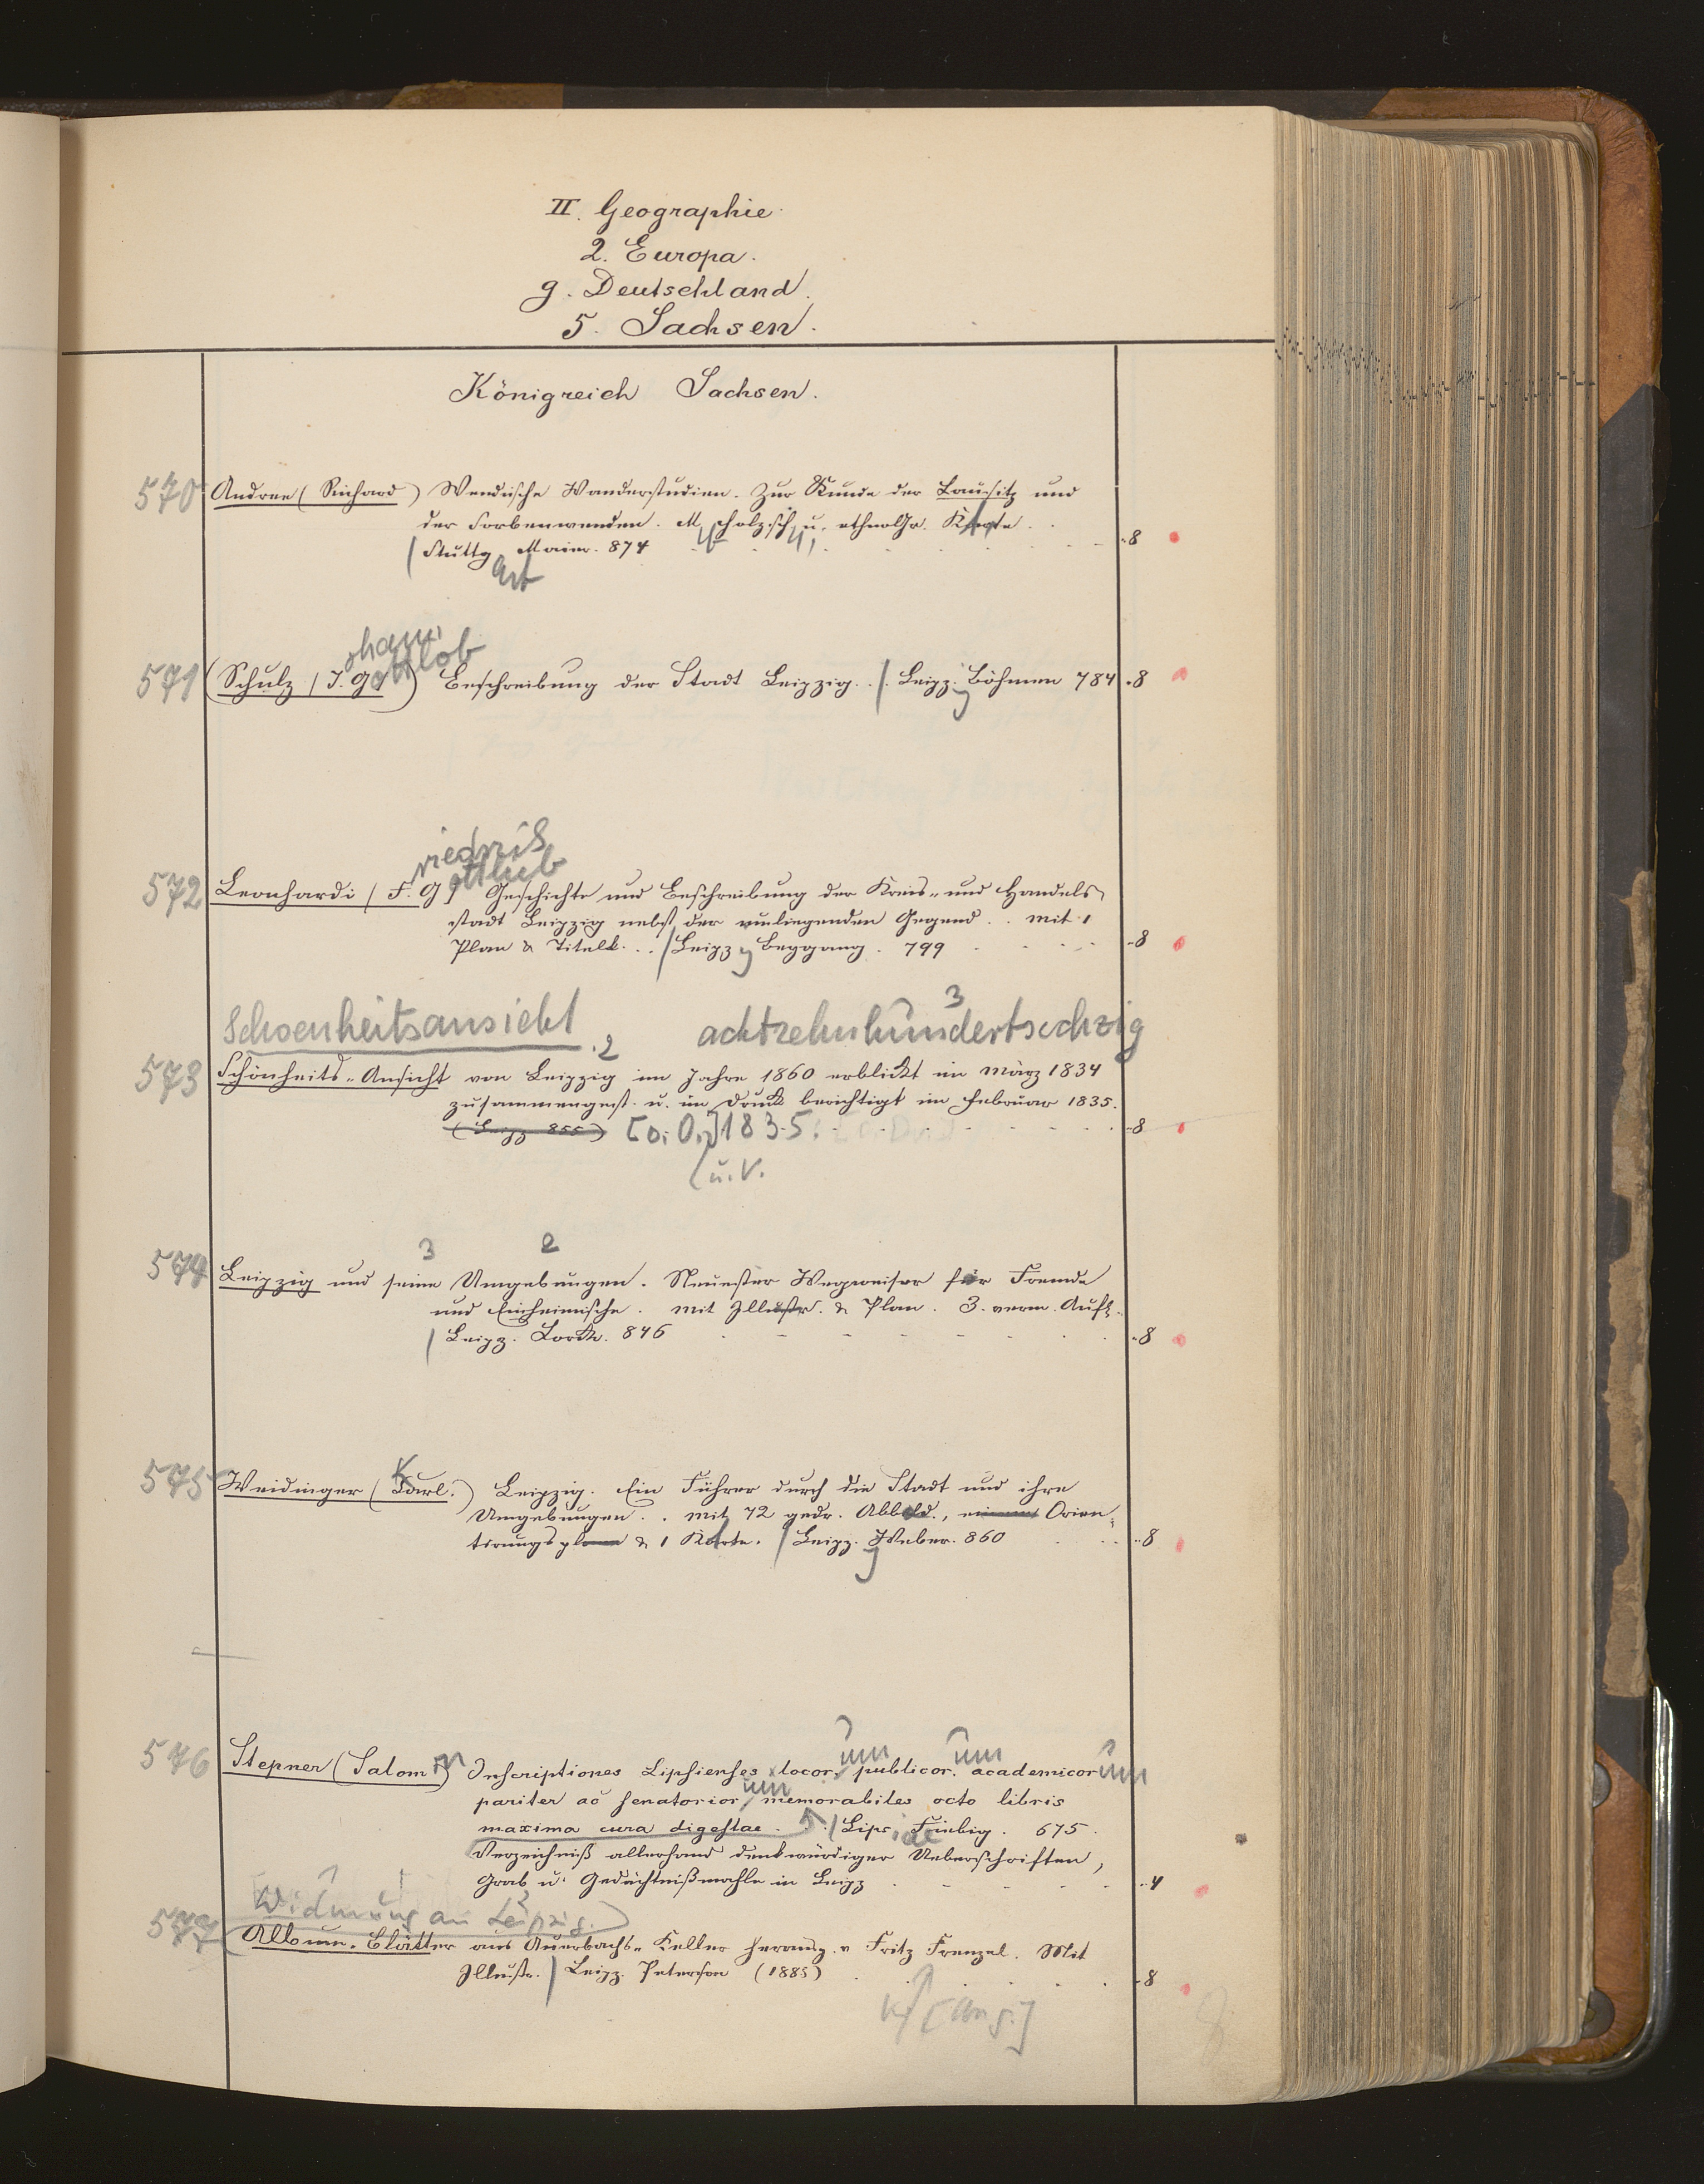 II. Geographie.
2. Europa.
g. Deutschland.
5. Sachsen.
Königreich Sachsen.
570 Andree (Richard) Wendische Wanderstudien. Zur Kunde der Lausitz und
der Sorbenwenden. M. Holzsch. u. ethnolgr. Karte.
Stuttg Maier. 874 8
art
ohann
ottlob
571 (Schulz (J. G.) Beschreibung der Stadt Leipzig. Leipz. Böhmen 784 8
riedrich
ottlieb
572 Leonhardi (F. G.) Geschichte und Beschreibung der Kreis- und Handels-
stadt Leipzig nebst der umliegenden Gegend. mit 1
Plan & Titelk. Leipzg Beygang. 799 8
3
Schoenheitsansicht achtzehnhundertsechzig
2
573 Schönheits-Ansicht von Leipzig im Jahre 1860 erblickt im März 1834
zusammengest. u. im Druck berichtigt im Februar 1835.
(Leipz 855) [o. O.] 1835. 8
u. V.
3 2
574 Leipzig und seine Umgebungen. Neuester Wegweiser für Fremde
und Einheimische. mit Illustr. & Plan. 3. verm. Aufl.
Leipz. Lorck. 846 8
575 Weidinger (Karl.) Leipzig. Ein Führer durch die Stadt und ihre
Umgebungen. mit 72 gedr. Abbild., einem Orien-
tirungsplane & 1 Karte. Leipz. Weber. 860 8
576 Stepner (Salom) Inscriptiones Lipsienses locorum publicorum academicorum
pariter ac senatoriorum memorabiles octo libris
maxima cura digestae. Lipsiae Fiebig. 675.
Verzeichniß allerhand denkwürdiger Ueberschriften,
Grab u. Gedächtnißmahle in Leipz 4
Widmung an Leipzig.
577 Album-Blätter aus Auerbachs-Keller herausg. v Fritz Frenzel. Mit
Illustr. Leipz. Peterson (1885) 8